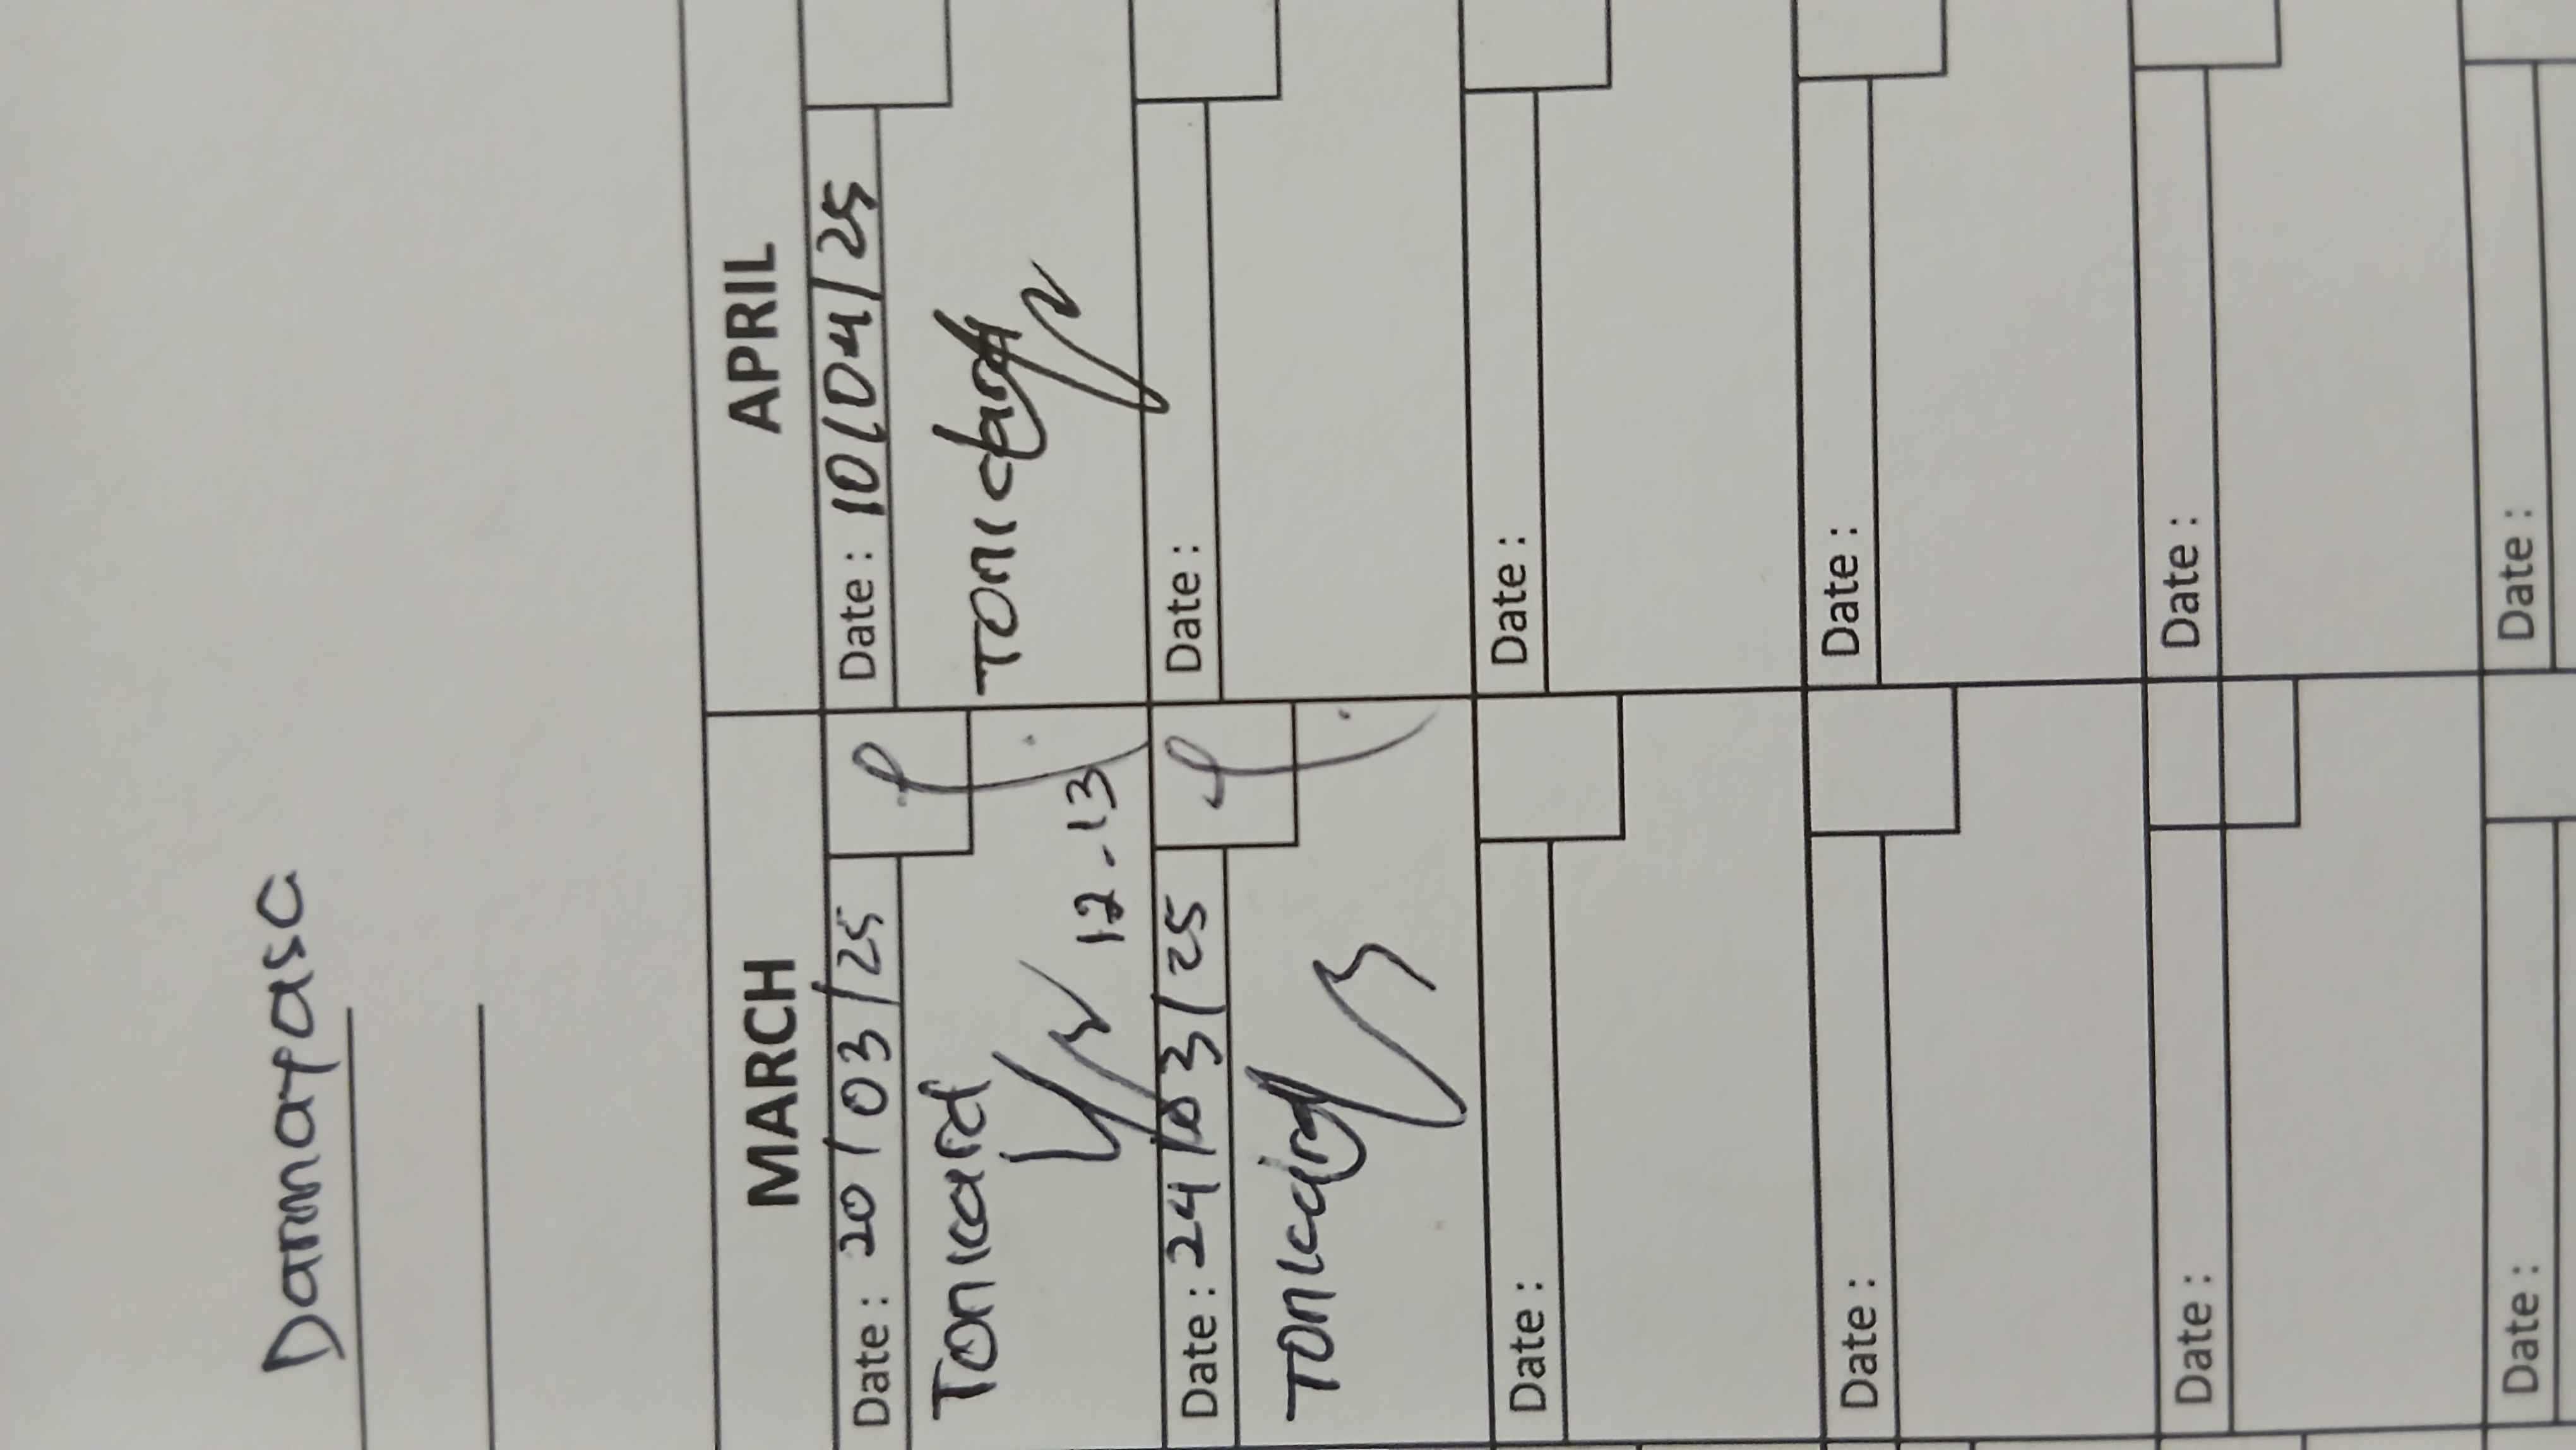 Darmayasa
MARCH
APRIL
Date : 20/03/25
Date : 10/04/25
Tonicard
Tonicard
12-13
Date : 24/03/25
Date :
Tonicard
Date :
Date :
Date :
Date :
Date :
Date :
Date :
Date :